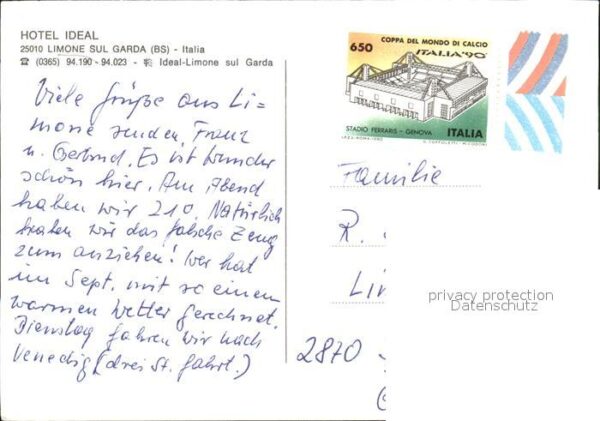 HOTEL IDEAL
25010 LIMONE SUL GARDA (BS) - Italia
☎ (0365) 94.190 - 94.023 - Ideal-Limone sul Garda
Viele Grüße aus Li=
mone senden, Franz
u. Gertrud. Es ist wunder
schön hier. Am Abend
haben wir 21°. Natürlich
haben wir das falsche Zeug
zum anziehen! Wer hat
im Sept. mit so einem
warmen Wetter gerechnet.
Dienstag fahren wir nach
Venedig (drei St. Fahrt.)
650
COPPA DEL MONDO DI CALCIO
ITALIA '90
STADIO FERRARIS - GENOVA
ITALIA
I.P.Z.S.-ROMA-1990
Familie
R.
Lin
privacy protection
Datenschutz
2870